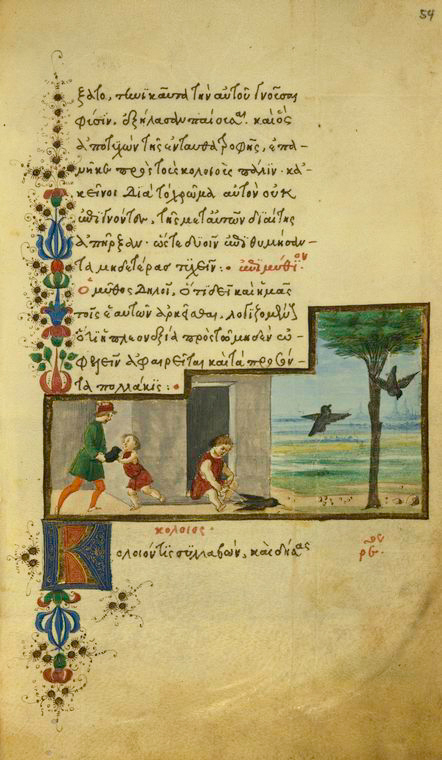 54
ξατο, τηνικαῦτα τὴν αὐτοῦ γνοῦσαι
φύσιν, ἐξήλασαν παίουσαι. καὶ ὃς
ἀποτυχὼν τῆς ἐνταῦθα τροφῆς, ἐπα-
νῆκε πρὸς τοὺς κολοιοὺς πάλιν. κἀ-
κεῖνοι διὰ τὸ χρῶμα αὐτὸν οὐκ
ἐπιγνόντες, τῆς μετ' αὐτῶν διαίτης
ἀπεῖρξαν. ὥστε δυοῖν ἐπιθυμήσαν-
τα μηδετέρας τυχεῖν: ἐπιμύθιον
Ὁ μῦθος δηλοῖ, ὅτι δεῖ καὶ ἡμᾶς
τοῖς ἑαυτῶν ἀρκεῖσθαι, λογιζομένους
ὅτι ἡ πλεονεξία πρὸς τῷ μηδὲν ὠ-
φελεῖν ἀφαιρεῖται καὶ τὰ προσόν-
τα πολλάκις:
κολοιός.
Κολοιόν τις συλλαβών, καὶ δήσας